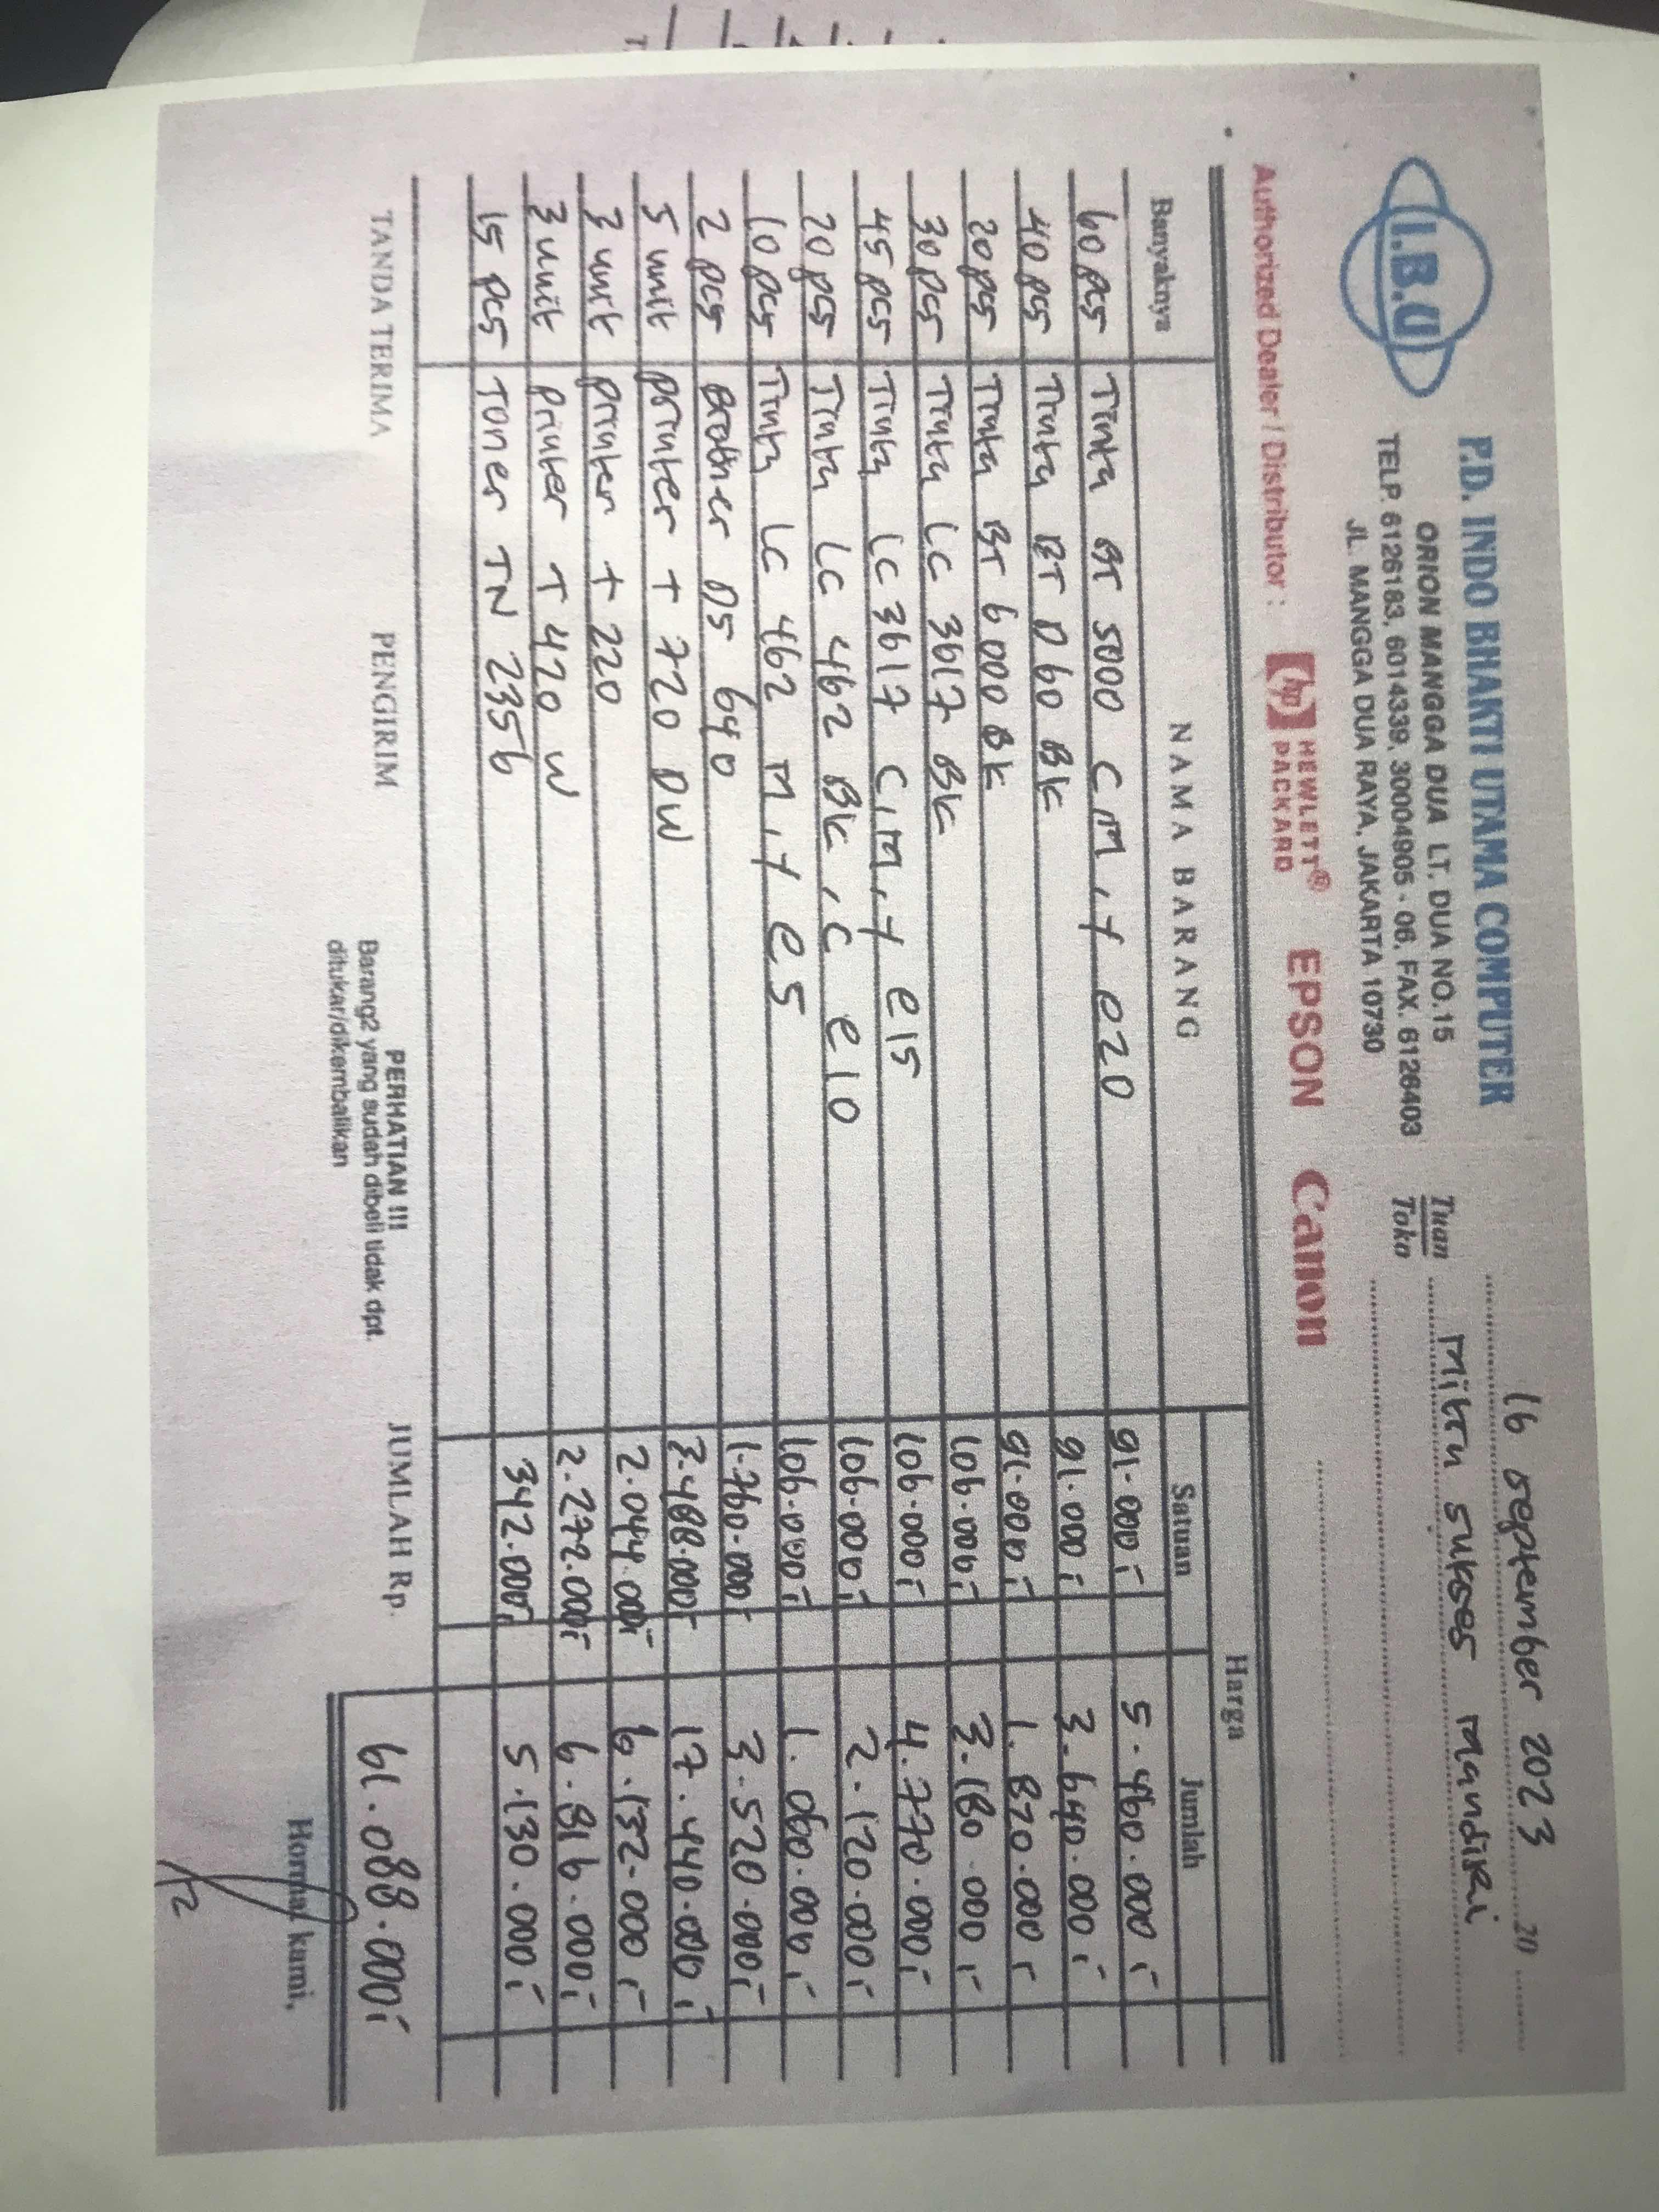 I.B.U
P.D. INDO BHAKTI UTAMA COMPUTER
ORION MANGGA DUA LT. DUA NO.15
TELP. 6126183, 6014339, 30004905 - 06, FAX. 6126403
JL. MANGGA DUA RAYA, JAKARTA 10730
16 september 2023 20
Tuan
Toko
Mitra sukses mandiri
Authorized Dealer / Distributor : hp HEWLETT® PACKARD EPSON Canon
Banyaknya NAMA BARANG Harga
Satuan Jumlah
60 pcs Tinta BT 5000 C,M,Y @20 91.000,- 5.460.000,-
40 pcs Tinta BT D60 BK 91.000,- 3.640.000,-
20 pcs Tinta BT 6000 BK 91.000,- 1.820.000,-
30 pcs Tinta LC 3617 BK 106.000,- 3.180.000,-
45 pcs Tinta LC 3617 C,M,Y @15 106.000,- 4.770.000,-
20 pcs Tinta LC 462 BK,C @10 106.000,- 2.120.000,-
10 pcs Tinta LC 462 M,Y @5 106.000,- 1.060.000,-
2 pcs Brother DS 640 1.760.000,- 3.520.000,-
5 unit Printer T 720 DW 3.488.000,- 17.440.000,-
3 unit Printer T 220 2.044.000,- 6.132.000,-
3 unit Printer T 420 W 2.272.000,- 6.816.000,-
15 pcs Toner TN 2356 342.000,- 5.130.000,-
TANDA TERIMA PENGIRIM JUMLAH Rp. 61.088.000,-
PERHATIAN !!!
Barang2 yang sudah dibeli tidak dpt.
ditukar/dikembalikan
Hormat kami,